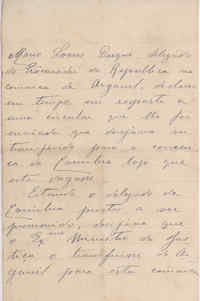 Mario Lopes Duque delegado
do Procurador da Republica na
comarca de Arganil, declarou
em tempo em resposta a
uma circular que lhe foi
enviada que desejava ser
transferido para a comar-
ca de Coimbra logo que
esta vagasse.
Estando o delegado de
Coimbra prestes a ser
promovido, desejava que
o Exmo Ministro da Jus-
tiça o transferisse de Ar-
ganil para esta comarca